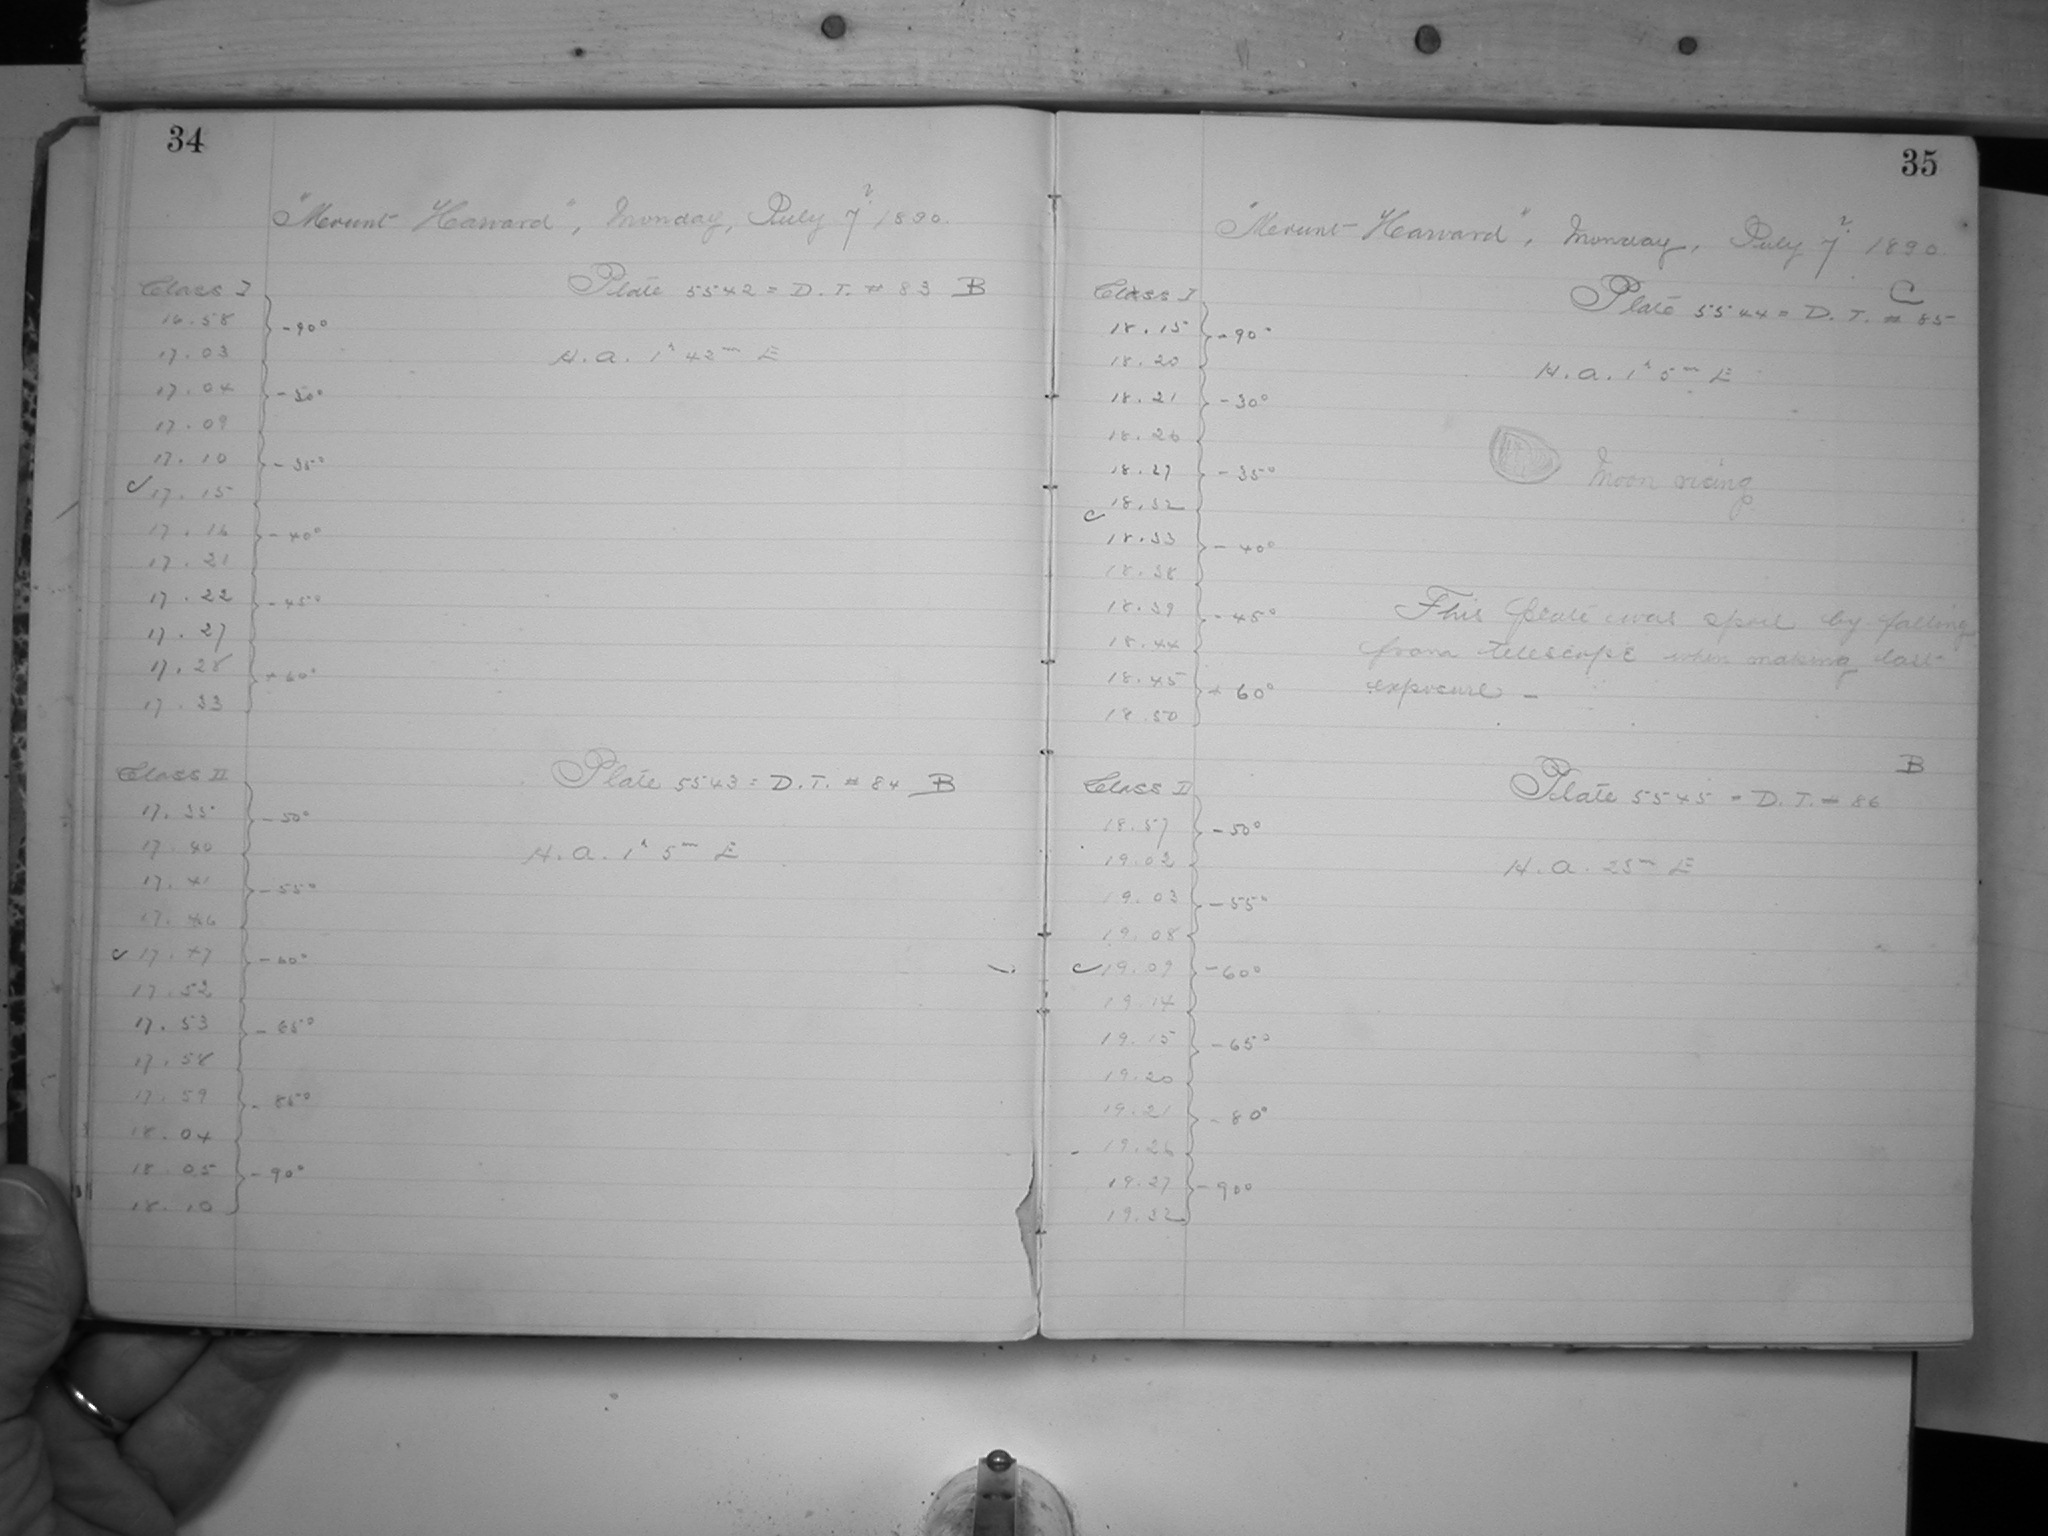 34
"Mount Harvard", Monday, July 7, 1890.
Class I
Plate 5542 = D. T. # 83 B
16.58
-90°
17.03
H. A. 1h 42m E
17.04
-30°
17.09
17.10
-35°
17.15
17.16
-40°
17.21
17.22
-45°
17.27
17.28
+60°
17.33
Class II
Plate 5543 = D. T. # 84 B
17.35
-50°
17.40
H. A. 1h 5m E
17.41
-55°
17.46
17.47
-60°
17.52
17.53
-65°
17.58
17.59
-85°
18.04
18.05
-90°
18.10
35
"Mount Harvard", Monday, July 7, 1890.
Class I
Plate 5544 = D. T. # 85 C
18.15
-90°
18.20
H. A. 1h 5m E
18.21
-30°
18.26
18.27
-35°
Moon rising
18.32
18.33
-40°
18.38
18.39
-45°
This plate was spoil by falling
18.44
from telescope when making last
18.45
+60°
exposure -
18.50
Class II
Plate 5545 = D. T. # 86 B
18.57
-50°
19.02
H. A. 25m E
19.03
-55°
19.08
19.09
-60°
19.14
19.15
-65°
19.20
19.21
-80°
19.26
19.27
-90°
19.32